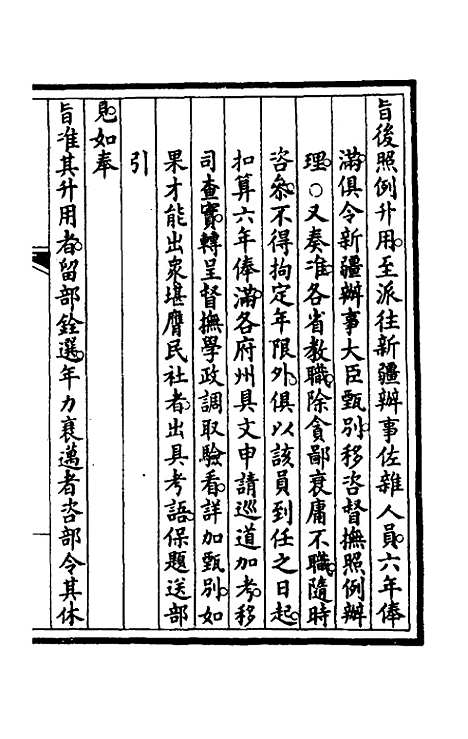 旨後照例升用。至派往新疆辦事佐雜人員。六年俸
滿。俱令新疆辦事大臣甄別。移咨督撫。照例辦
理。○又奏准。各省教職。除貪鄙衰庸不職。隨時
咨參。不得拘定年限外。俱以該員到任之日起。
扣算六年俸滿。各府州具文申請巡道加考。移
司查實。轉呈督撫學政調取驗看。詳加甄別。如
果才能出衆。堪膺民社者。出具考語。保題送部
引
見。如奉
旨准其升用者。留部銓選。年力衰邁者。咨部令其休